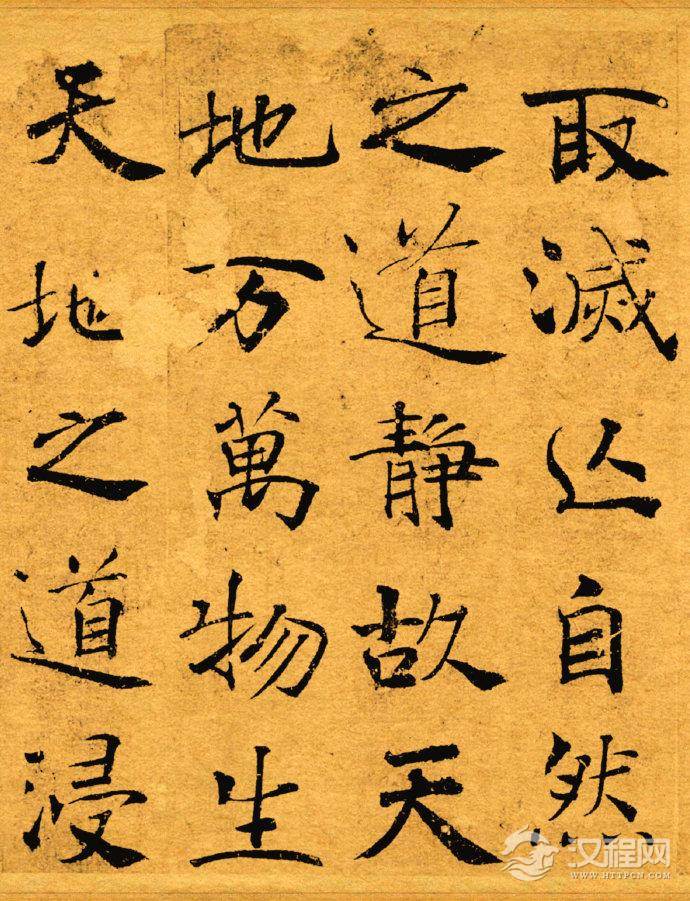 取滅亾自然
之道静故天
地万萬物生
天地之道浸
汉程网
WWW.HTTPCN.COM